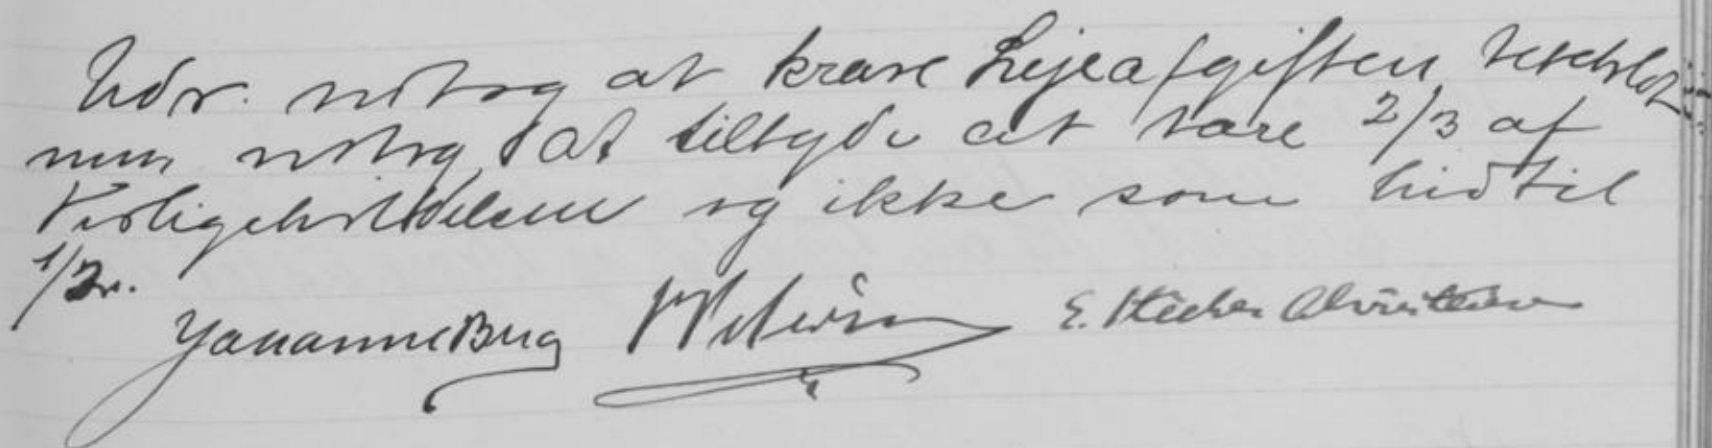 Udv. vedtog at kræve Lejeafgiften
men vedtog at tilbyde at være 2/3 af
Vedligeholdelsen og ikke som hidtil
1/2.
Johanne Berg E. Christensen